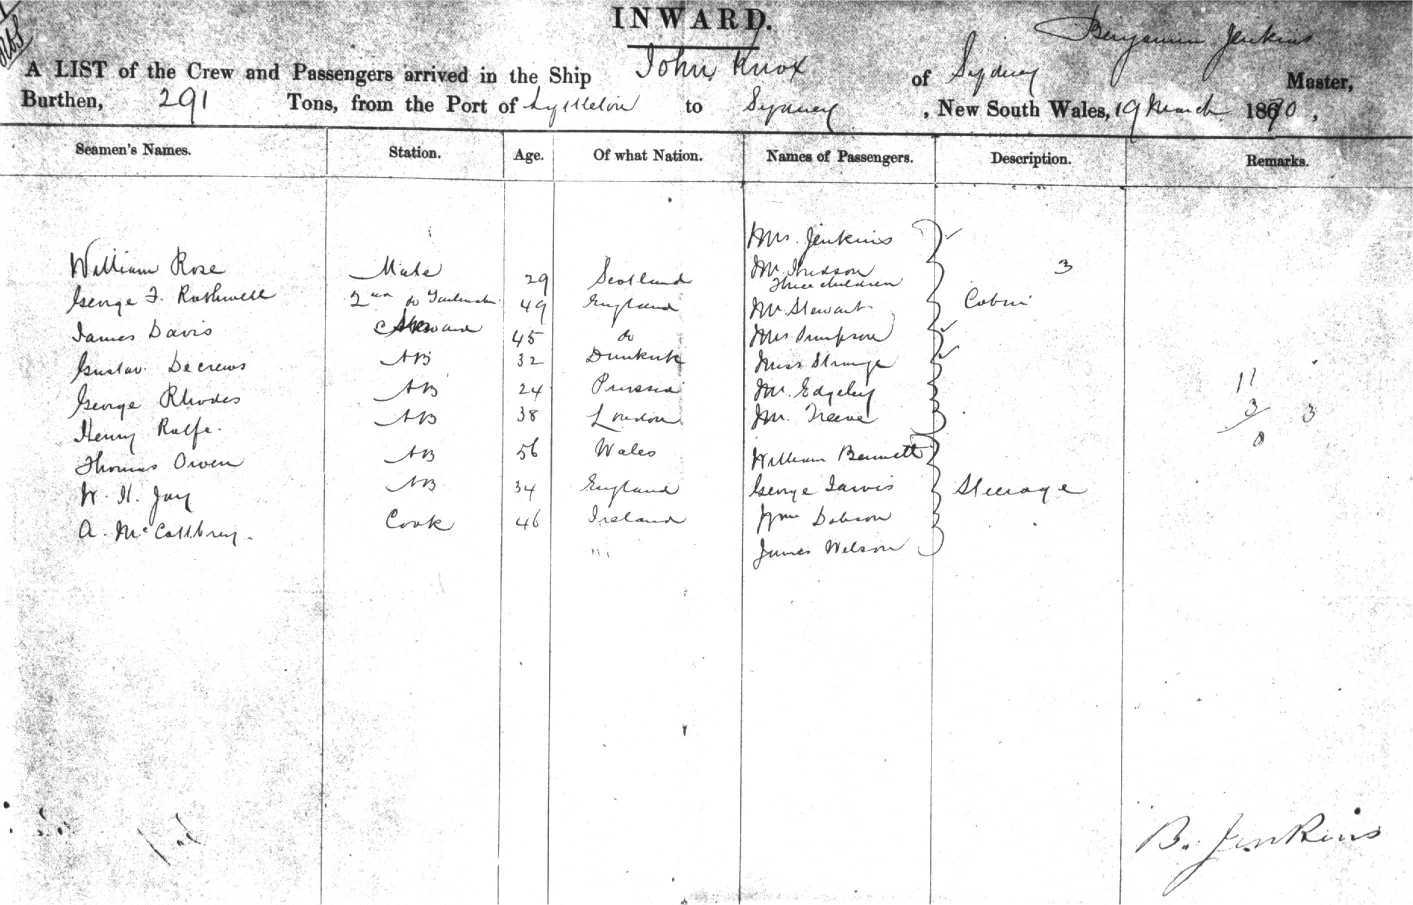 INWARD.
Benjamin Jenkins
A LIST of the Crew and Passengers arrived in the Ship John Knox of Sydney Master,
Burthen, 291 Tons, from the Port of Lyttleton to Sydney, New South Wales, 19 March 1870,
Seamen's Names. Station. Age. Of what Nation. Names of Passengers. Description. Remarks.
Mrs. Jenkins
William Rose Mate 29 Scotland Mr Hudson 3
Three children
George F. Rothwell 2nd do 49 England Mr Stewart Cabin
James Davis Steward 45 do Mrs Simpson
Gustav. Decrews AB 32 Dunkirk Miss Strange
George Rhodes AB 24 Prussia Mr. Edgeley 11
Henry Rolfe. AB 38 London Mr. Treeve 3 3
8
Thomas Owen AB 56 Wales William Bennett
W. H. Jay AB 34 England George Jarvis Steerage
A. McCallbrey. Cook 46 Ireland Wm Dobson
James Wilson
B. Jenkins